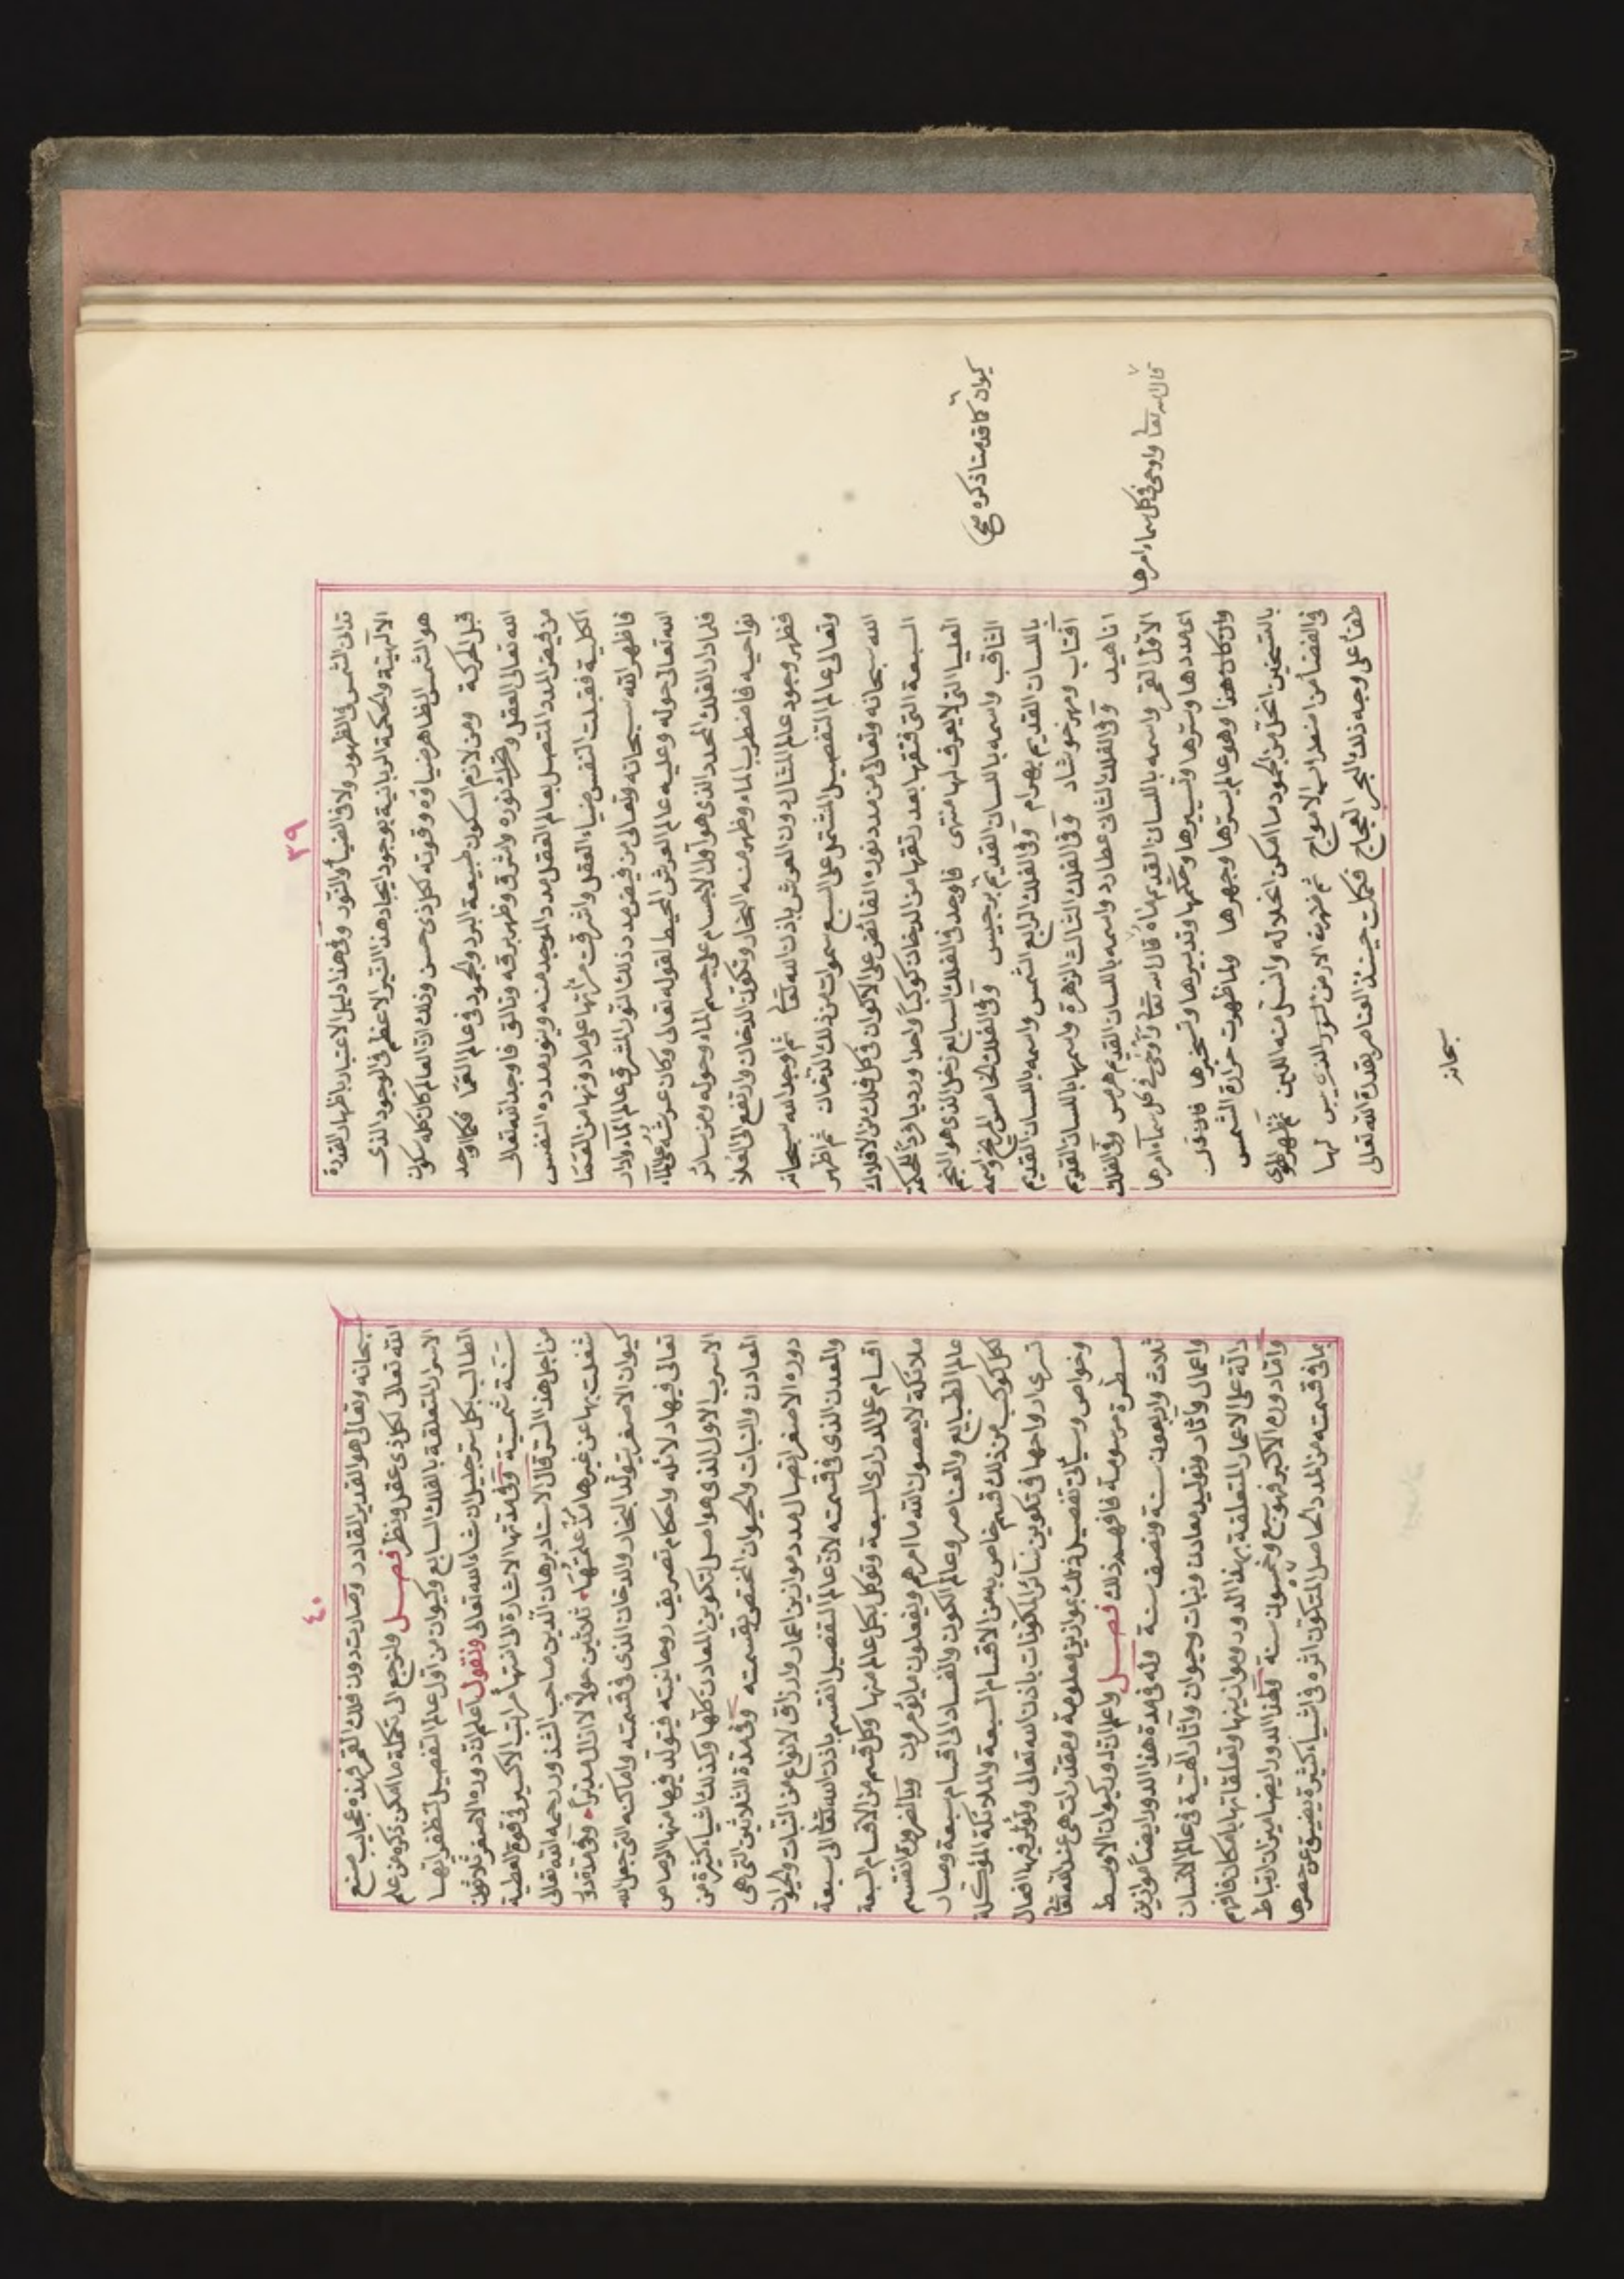 ٣٩
تدلك الشمس في الظهور ولا في الضياء والنور وفي هذا دليل الاعتبار باظهار القدرة
الالهية والحكمة الربانية بوجود ايجاد هذا النير الاعظم في الوجود الذي
هو الشمس الظاهر ضياؤه وقوته لكل ذي حس وذلك ان العالم كان كله سكون
قبل الحركة ومن لازم السكون طبيعة البرد والجمود في عالم العما فكما اوجد
الله تعالى العقل نوره واشرق وظهر برقه وتالق فاوجد الله تعالى
من فيض المدد المتصل بعالم العقل مدد الموجد منه وبنو مدده النفس
الكلية فقبلت النفس ضياء العقل واشرقت مرأتها على ما دونها من العما
فاظهر الله سبحانه وتعالى من فيض مدد ذلك النور المشرق عالم الماء وادار
الله تعالى حوله وعليه عالم العرش المحيط لقوله تعالى وكان عرشه على الماء
فلما دار الفلك المحدد الذي هو اول الاجسام على جسم الماء وحوله ومن سائر
نواحيه فاضطرب الماء وظهر منه البخار وتكون الدخان وارتفع الى العلا
فظهر وجود عالم المثال دون العرش باذن الله تعا ثم اوجد الله سبحانه
وتعالى عالم التفصيل المشتمل على السبع سموات من ذلك الدخان ثم اظهر
الله سبحانه وتعالى من مدد نوره الفائض على الاكوان في كل فلك من الافلاك
السبعة التي فتقها بعد رتقها من الدخان كوكبا واحدا ودريا فردا لحكمته
العليا التي لا يعرف لها منتهى فاوجد في الفلك السابع زحل الذي هو النجم
الثاقب واسمه باللسان القديم برجيس وفي الفلك الخامس المريخ واسمه
باللسان القديم بهرام وفي الفلك الرابع الشمس واسمه باللسان القديم
افتاب ومهر خورشاد وفي الفلك الثالث الزهرة واسمها باللسان القديم
اناهيد وفي الفلك الثاني عطارد واسمه باللسان القديم هرمس وفي الفلك
الاول القمر واسمه باللسان القديم ماه قال الله تعا واوحى في كل سماء امرها
اى مددها وسرها وتسييرها وحكمها وتدبيرها وتسخيرها فان قلت
وان كان هذا وهو عالم بسرها وجهرها ولما ظهرت حرارة الشمس
بالتسخين انحل من الجمود ما امكن انحلاله وانسل منه اللين ثم ظهر الهوى
في الفضا من اضطراب الامواج ثم ظهرت الارض الذي ليس لها
طفا على وجه ذلك البحر العجاج فكملت حينئذ العناصر بقدرة الله تعالى
كيوان كما قدمنا ذكره صح
قال الله تعا واوحى في كل سماء امرها
سبحانه
٤٠
سبحانه وتعالى هو القدير القادر وصارت دون فلك القمر فهذه عجايب صنع
الله تعالى لكل ذي عقل ونظر فصل ولنرجع الى تكملة ما امكن ذكره من علم
الاسرار المتعلقة بالفلك السابع وكيوان من اول عالم التفصيل لتظفر ايها
الطالب بكل سر جليل ان شاء الله تعالى ونقول اعلم ان دوره الاصغر ثلاثون
سنة شمسية وفي مدتها الاشارة الى انتهاء مراتب الاكسير في قوة العطية
من اجل هذا السر قال الاستاد برهان الدين صاحب الشذور رحمه الله تعالى
شغلت بها عن غيرها مذ علمتها ثلاثين حولا لا ازال مدبرا وفي مدة دور
كيوان الاصغر يتولد البخار والدخان الذي في قسمته واماكنه التي جعل الله
تعالى فيها دلائله واحكام تصريف روحانيته فيتولد فيها منها الرصاص
الاسرب الاول الذي هو اصل لتكوين المعادن كلها وكذلك اشياء كثيرة من
المعادن والنبات والحيوان المختص بقسمته وفي مدة الثلاثين التي هي
دوره الاصغر اتصال مدد موازين اعمار وارزاق لانواع من النبات والحيوان
والمعدن الذي في قسمته لان عالم التفصيل انقسم باذن الله تعا الى سبعة
اقسام على الدراري السبعة وتوكل بكل عالم منها وكل قسم من الاقسام السبعة
ملائكة لا يعصون الله ما امرهم ويفعلون ما يؤمرون وبالضرورة انقسم
عالم الطبايع والعناصر وعالم الكون والفساد الى اقسام سبعة وصار
لكل كوكب من ذلك قسم خاص به من الاقسام السبعة والملائكة الموكلة
تسرى ارواحها في تكوين سائر المكونات باذن الله تعالى وتؤثر فيها افعال
وخواص وسيأتى تفصيل ذلك بموازين معلومة ومقدرات هي عند الله تعا
مسطرة مرسومة فافهم ذلك فصل واعلم ان لدور كيوان الاوسط
ثلاث واربعون سنة ونصف سنة وله في مدة هذا الدور ايضا موازين
واعمال واثار وتوليد معادن ونبات وحيوان واثار الهية في عالم الانسان
دالة على الاعمار المتعلقة بهذا الدور وموازينها وتعلقاتها بامكان فافهم
واما دوره الاكبر فهو سبع وخمسون سنة ولهذا الدور ايضا ميزان ارتباط
بما في قسمته من المدد الحاصل المتكون اثره في اشياء كثيرة يضيق عن حصرها